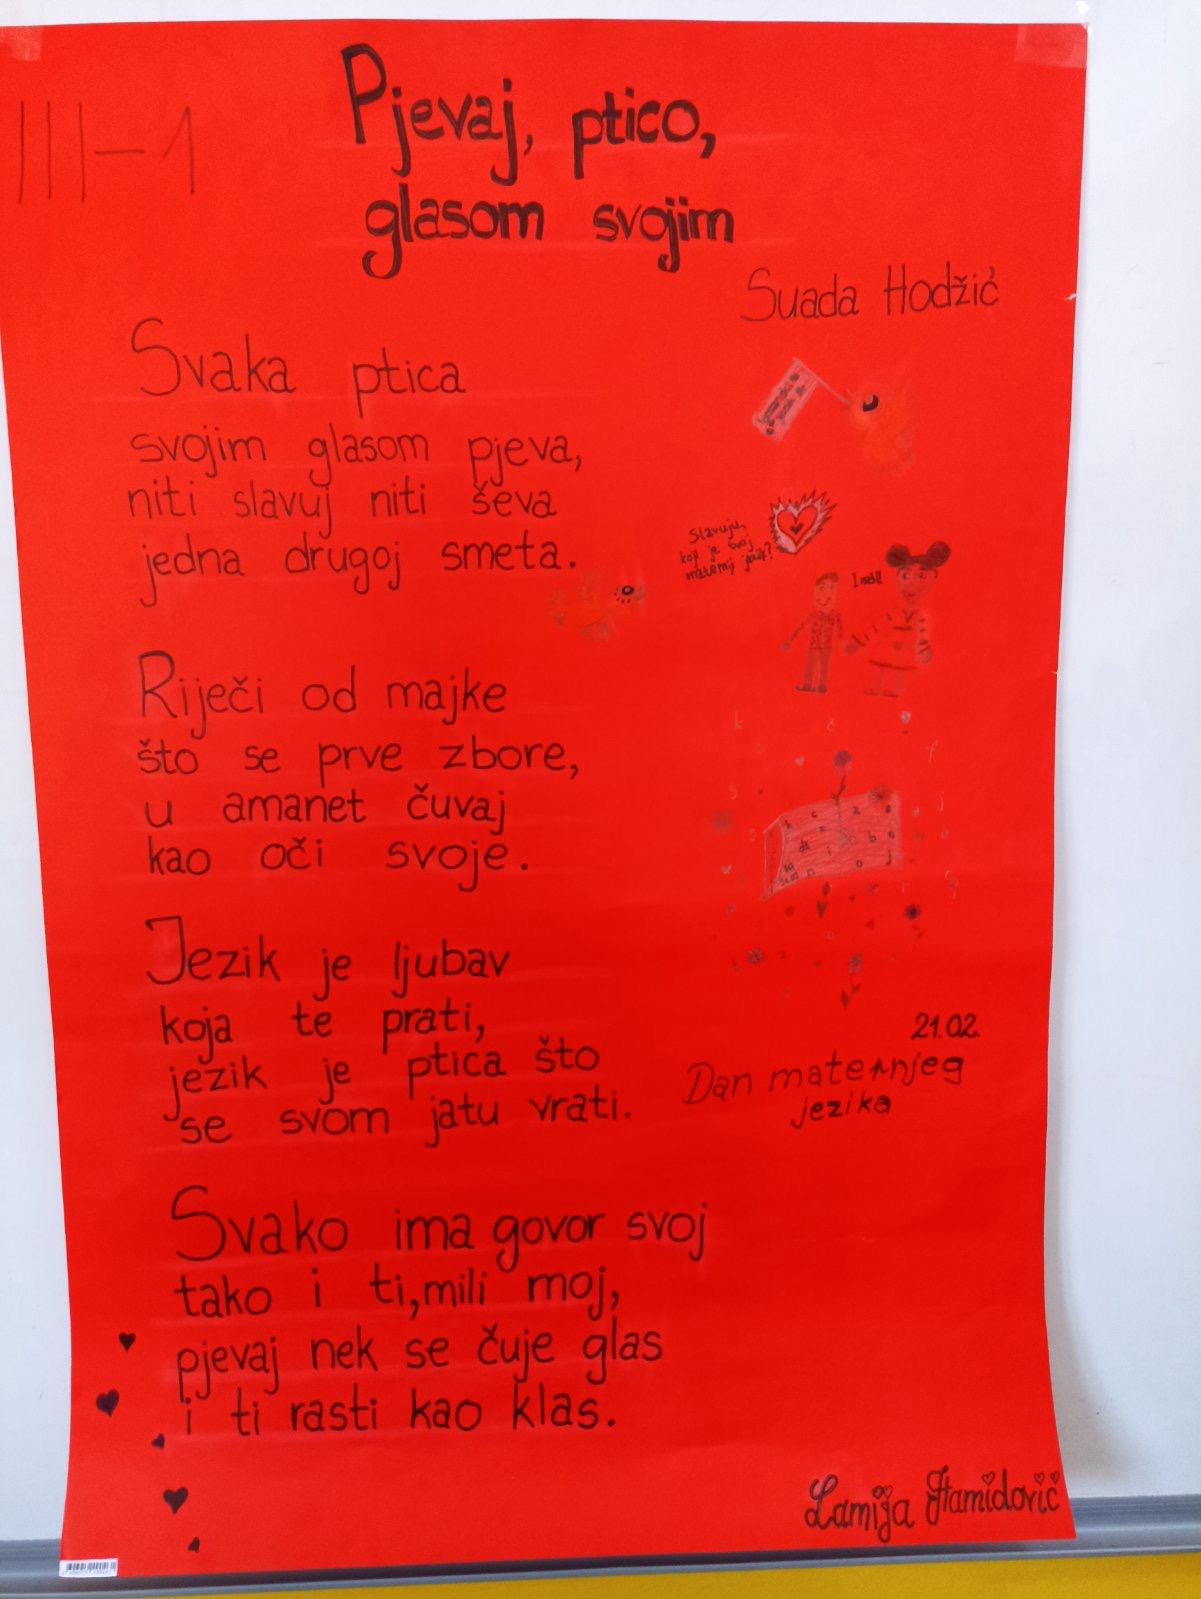 III-1
Pjevaj, ptico,
glasom svojim
Suada Hodžić
Svaka ptica
svojim glasom pjeva,
niti slavuj niti ševa
jedna drugoj smeta.
Slavuju,
koji je tvoj
maternji jezik?
Riječi od majke
što se prve zbore,
u amanet čuvaj
kao oči svoje.
Jezik je ljubav
koja te prati,
jezik je ptica što
se svom jatu vrati.
21.02.
Dan maternjeg
jezika
Svako ima govor svoj
tako i ti,mili moj,
pjevaj nek se čuje glas
i ti rasti kao klas.
Lamija Hamidović